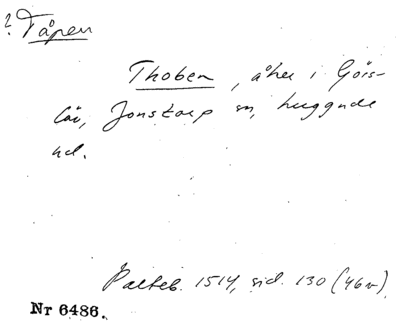 ? Tåpen
Thoben, åker i Görs-
löv, Jonstorp sn, Luggude
hd.
Palteb. 1514, sid. 130 (46v).
Nr 6486.